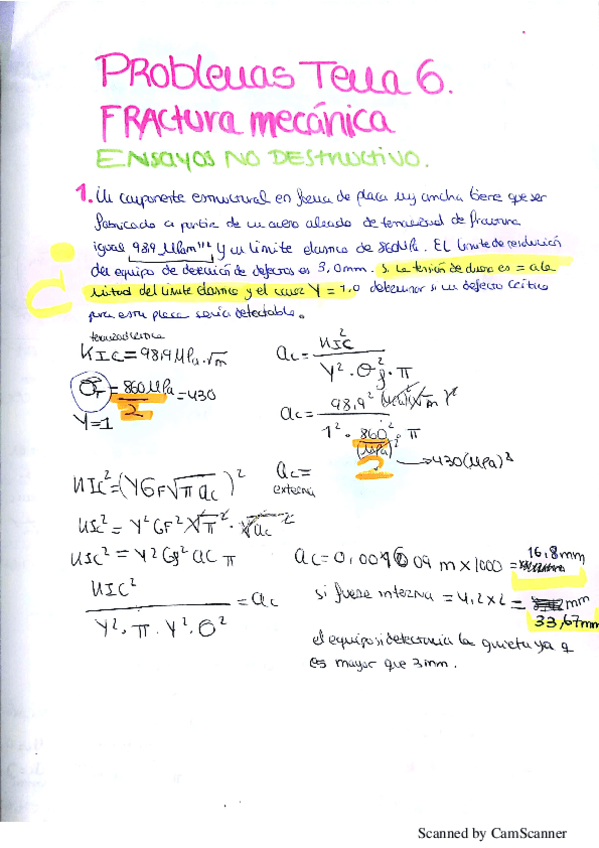 Problemas Tema 6.
FRActura mecánica
ENSAYOS NO DESTRUCTIVO.
1. Un componente estructural en forma de placa muy ancha tiene que ser
fabricado a partir de un acero aleado de tenacidad de fractura
igual 98,9 MPa m^1/2 y un limite elastico de 860 MPa. El limite de resolución
del equipo de detección de defectos es 3,0 mm. Si la tensión de diseño es = a la
mitad del limite elastico y el valor Y = 1,0 determinar si un defecto critico
para esta placa seria detectable.
tenacidad critica
KIC = 98,9 MPa·√m
σ = 860 MPa / 2 = 430
Y = 1
ac = KIC² / Y²·σf²·π
ac = 98,9² (MPa)²(√m)² / 1²·860²·π
(MPa)²
2
→ 430 (MPa)²
KIC² = (Y GF √π ac)²
ac =
externa
KIC² = Y² GF² √π²·√ac²
KIC² = Y² Gf² ac π
KIC² / Y²·π·Y²·σ² = ac
ac = 0,0 09 m x 1000 = 16,8 mm
si fuese interna = 4,2 x 2 = mm
33,67 mm
el equipo si detectaria la grieta ya q
es mayor que 3 mm.
Scanned by CamScanner